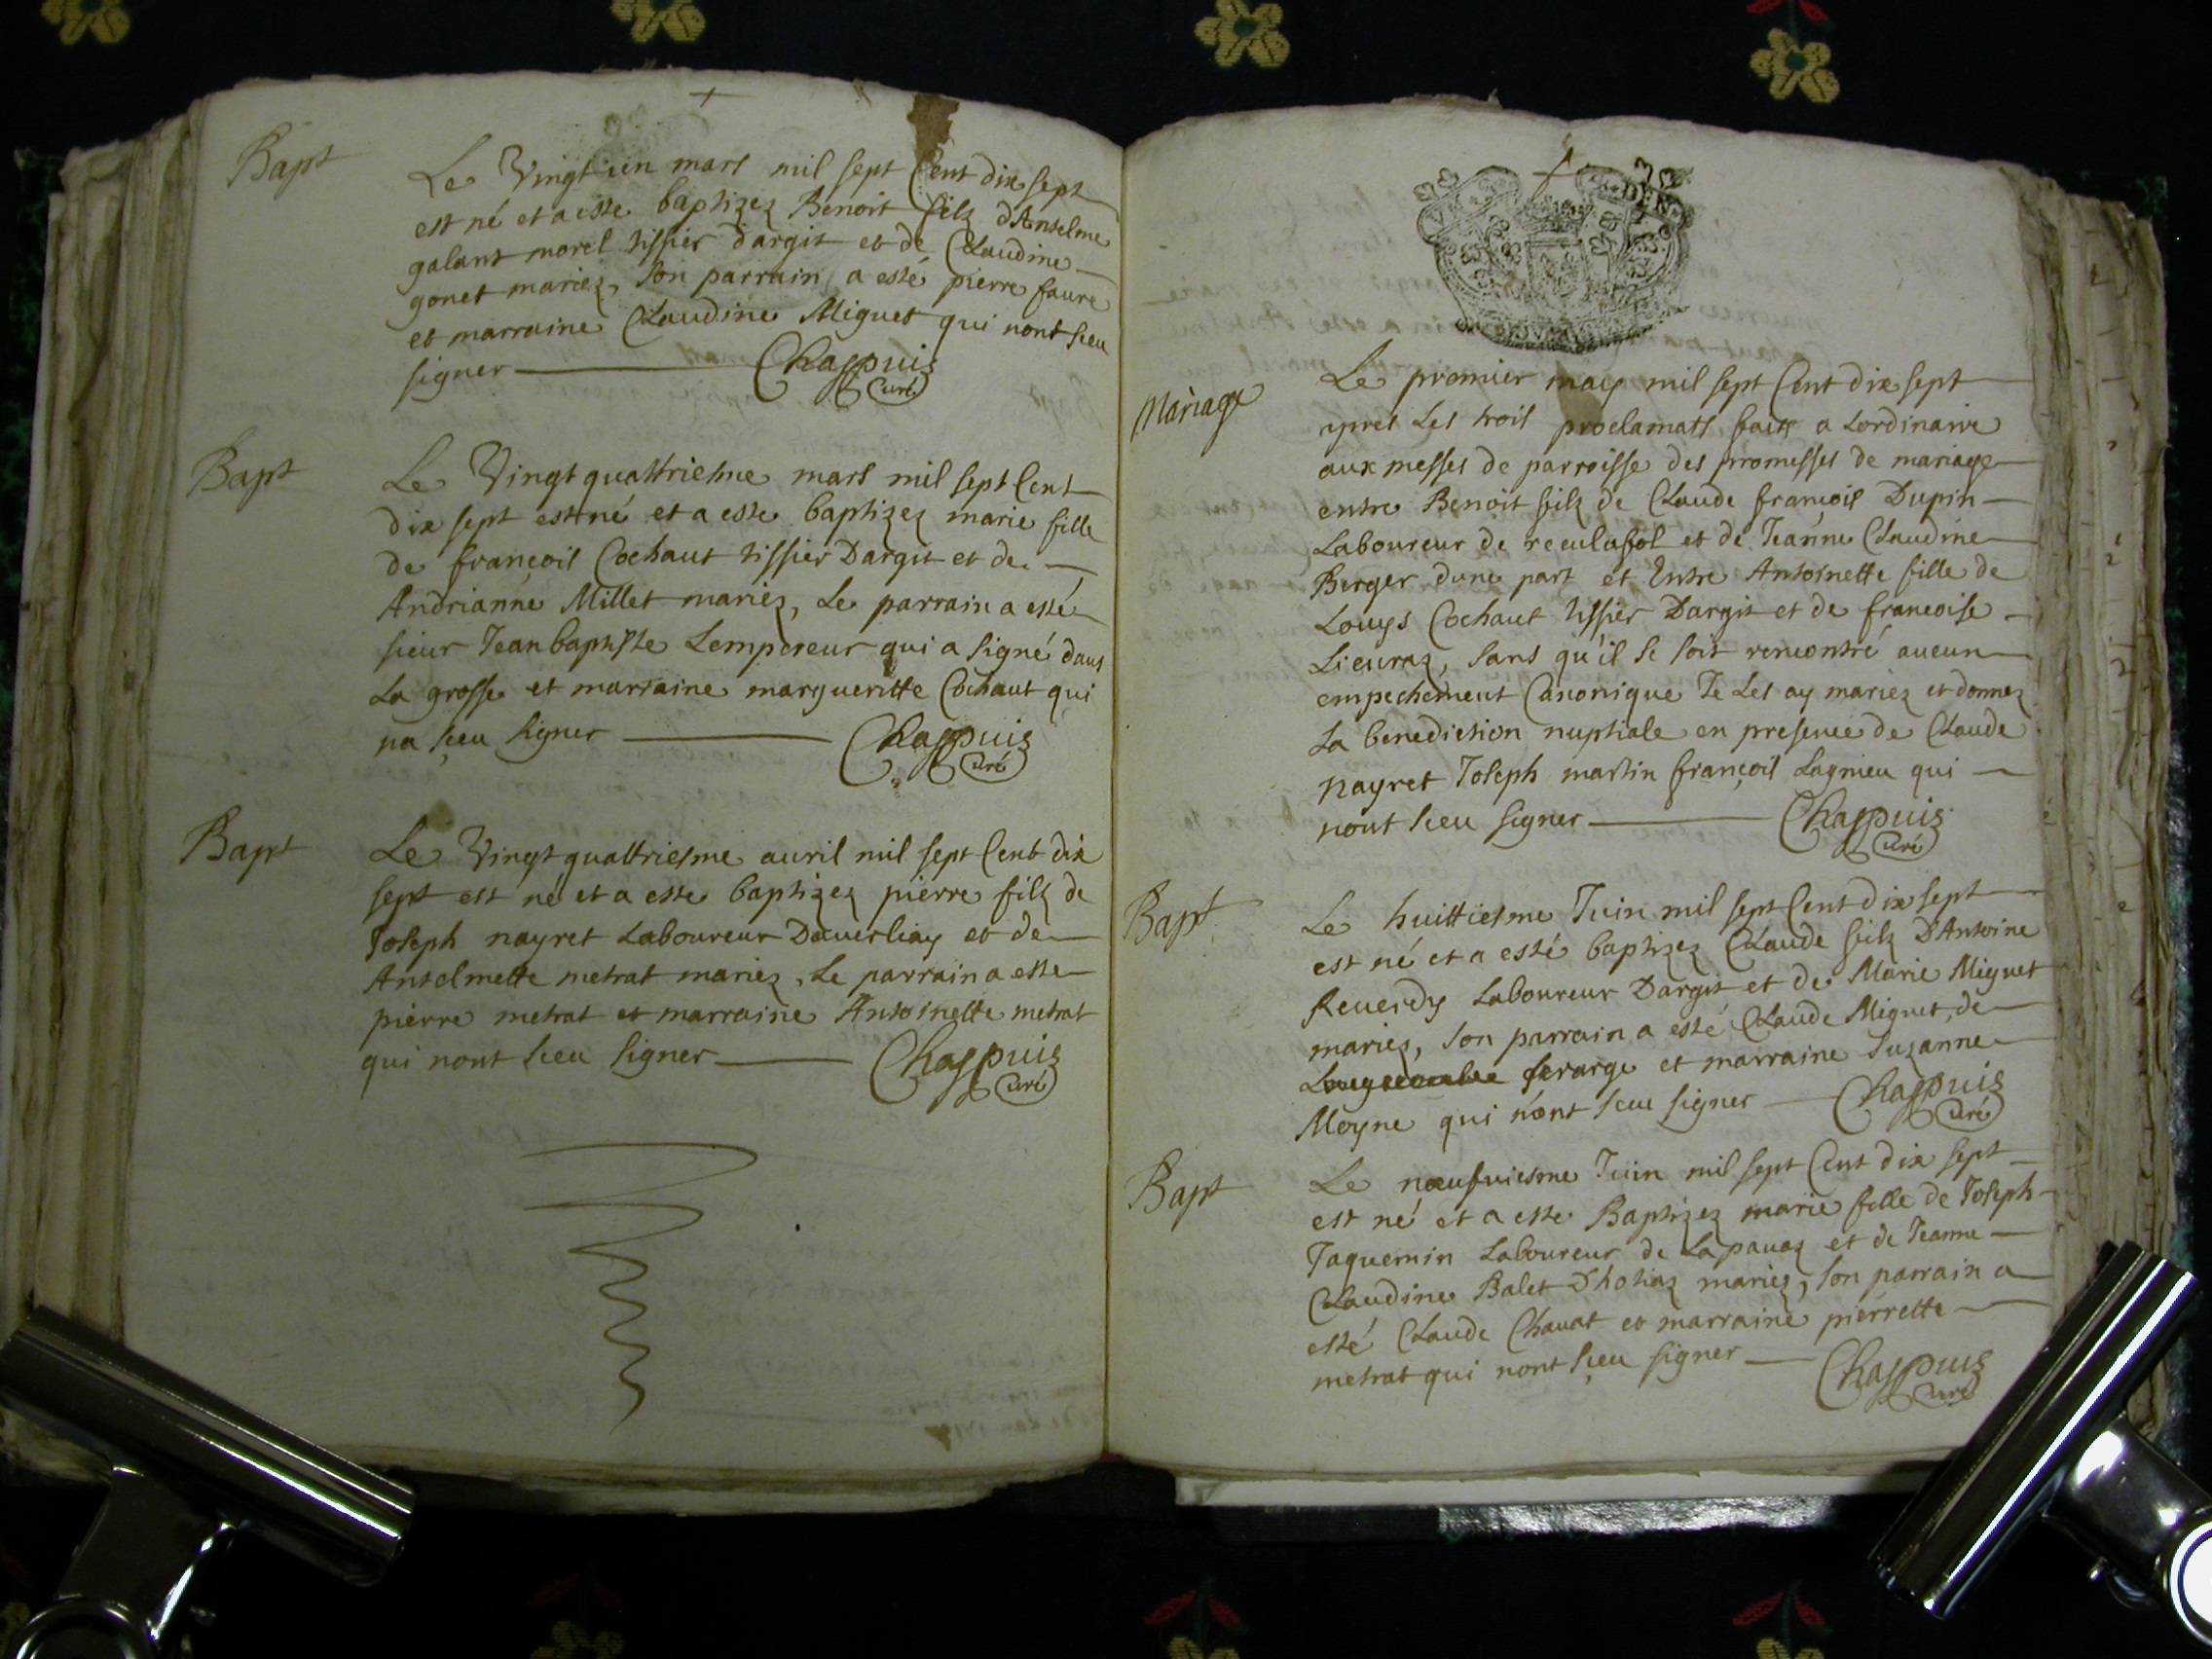 Bapt
Le Vingt un mars mil sept Cent dix sept
est né et a esté baptizez Benoit filz dAnselme
galant morel tissier dargit et de Claudine
gonet mariez, son parrain a esté pierre faure
et marraine Claudine Miguet qui nont sceu
signer Chappuis
curé
Bapt
Le Vingt quattriesme mars mil sept Cent
dix sept est né et a esté baptizez marie fille
de françois Cochaut tissier Dargit et de
Andrianne Millet mariez, Le parrain a esté
sieur Jean baptiste Lempereur qui a signé dans
La grosse et marraine margueritte Cochaut qui
na sçeu signer Chappuis
curé
Bapt
Le Vingt quattriesme auril mil sept Cent dix
sept est né et a esté baptizez pierre filz de
Joseph nayret Laboureur Dauerliay et de
Anselmette metrat mariez, Le parrain a esté
pierre metrat et marraine Antoinette metrat
qui nont sceu signer Chappuis
curé
Mariage
Le premier may mil sept Cent dix sept
apres Les trois proclamats faits a Lordinaire
aux messes de parroisse des promesses de mariage
entre Benoit filz de Claude françois Dupin
Laboureur de reculafol et de Jeanne Claudine
Berger dune part et Entre Antoinette fille de
Louys Cochaut tissier Dargit et de francoise
Lieuraz, sans qu'il se soit rencontré aucun
empechement Canonique Je Les ay mariez et donnez
La benediction nuptiale en presence de Claude
nayret Joseph martin françois Lagnieu qui
nont sceu signer Chappuis
curé
Bapt
Le huittiesme Juin mil sept Cent dix sept
est né et a esté baptizez Claude filz D'Antoine
Reuerdy Laboureur Dargit et de Marie Miguet
mariez, son parrain a esté Claude Miguet, de
ferarge et marraine Suzanne
Moyne qui n'ont sceu signer Chappuis
curé
Bapt
Le nœufuiesme Juin mil sept Cent dix sept
est né et a esté Baptizez marie fille de Joseph
Jaquemin Laboureur de Lapauaz et de Jeanne
Claudine Balet Dhotiaz mariez, son parrain a
esté Claude Chauat et marraine pierrette
metrat qui nont sçeu signer Chappuis
curé